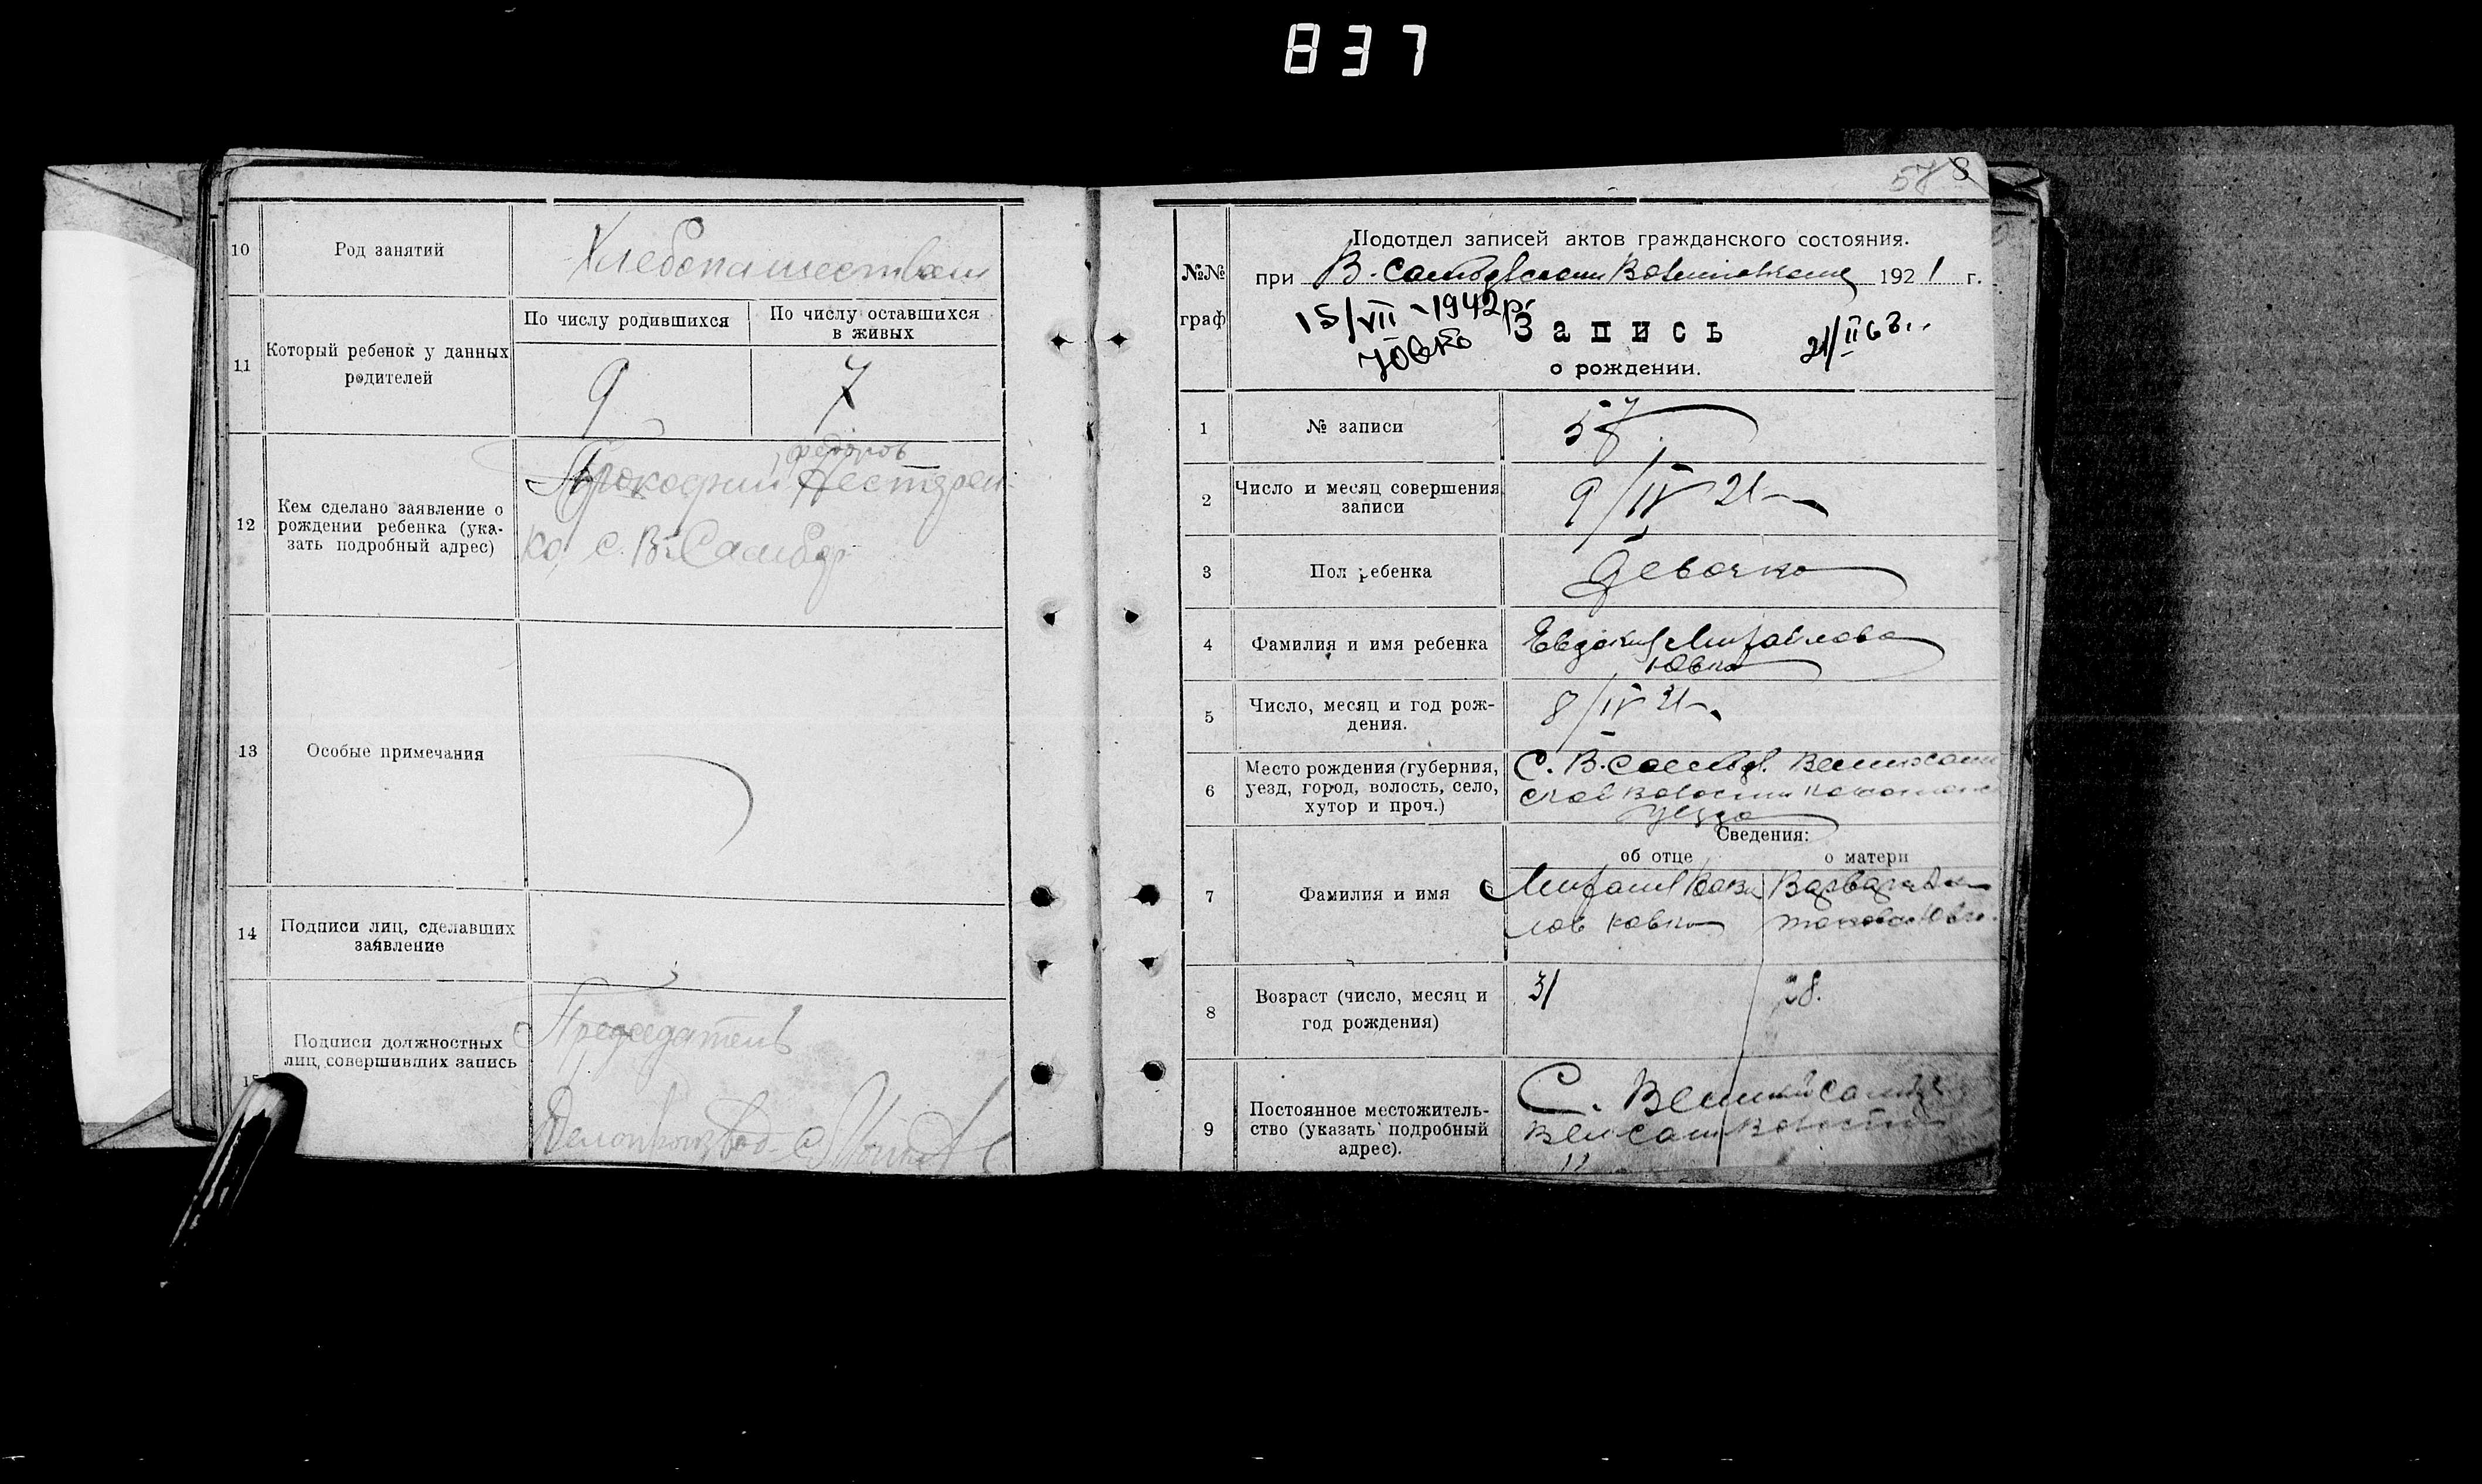 837
10
Род занятий
Хлебопашеством
11
Который ребенок у данных
родителей
По числу родившихся
По числу оставшихся
в живых
9
7
12
Кем сделано заявление о
рождении ребенка (ука-
зать подробный адрес)
Федоров
Прокофий Нестерен-
ко, с. В. Самбор
13
Особые примечания
14
Подписи лиц, сделавших
заявление
15
Подписи должностных
лиц, совершивших запись
Председатель
Делопроизвод.
578
№№
граф
Подотдел записей актов гражданского состояния.
при В. Самборском 1921 г.
15/VII-1942р.
Ювко
Запись
о рождении.
21/II 63..
1
№ записи
57
2
Число и месяц совершения
записи
9/IV 21
3
Пол ребенка
девочка
4
Фамилия и имя ребенка
Евдокия Михайлова
Ювко
5
Число, месяц и год рож-
дения.
8/IV 21
6
Место рождения (губерния,
уезд, город, волость, село,
хутор и проч.)
С. В. Самбор
ской волости
уезда
Сведения:
об отце
о матери
7
Фамилия и имя
Михаил
лов Ювко
Варвара
Ювко
8
Возраст (число, месяц и
год рождения)
31
28.
9
Постоянное местожитель-
ство (указать подробный
адрес).
С. Великий Самбор
Вел Сам волости